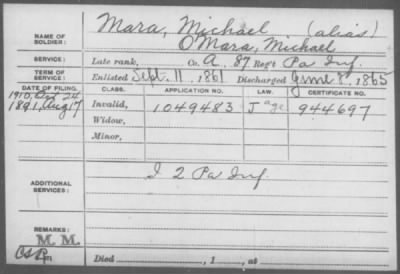 Mara, Michael (alias)
NAME OF SOLDIER: O'Mara, Michael
SERVICE: Late rank, Co. A, 87 Reg't Pa Inf.
TERM OF SERVICE: Enlisted Sept. 11, 1861 Discharged June 8, 1865
DATE OF FILING. CLASS. APPLICATION NO. LAW. CERTIFICATE NO.
1910, Oct 24
1891, Aug 17 Invalid, 1049483 J age 944697
Widow,
Minor,
ADDITIONAL SERVICES: I 2 Pa Inf.
REMARKS:
M. M.
Died , 1 , at